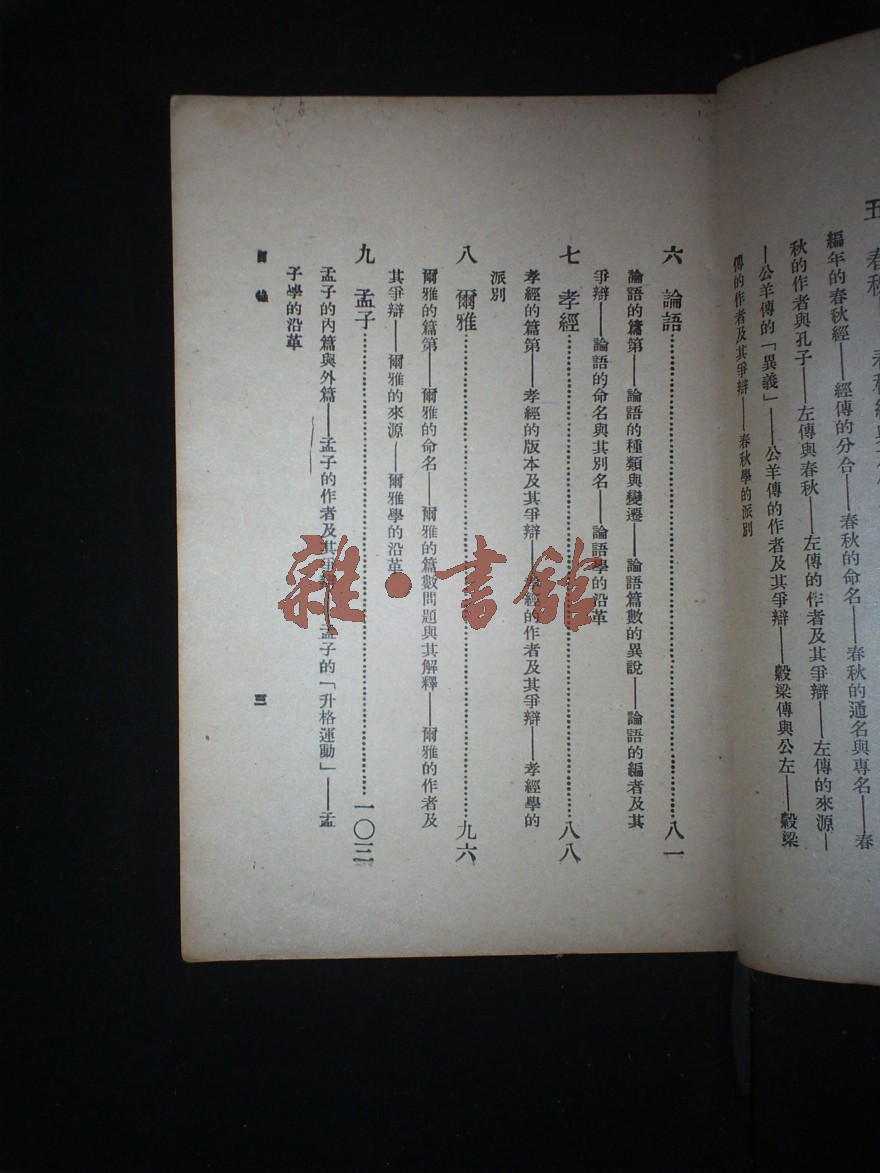 五　春秋
編年的春秋經——經傳的分合——春秋的命名——春秋的通名與專名——春
秋的作者與孔子——左傳與春秋——左傳的作者及其爭辯——左傳的來源—
—公羊傳的「異義」——公羊傳的作者及其爭辯——穀梁傳與公左——穀梁
傳的作者及其爭辯——春秋學的派別
六　論語……………………八一
論語的篇第——論語的種類與變遷——論語篇數的異說——論語的編者及其
爭辯——論語的命名與其別名——論語學的沿革
七　孝經……………………八八
孝經的篇第——孝經的版本及其爭辯——孝經的作者及其爭辯——孝經學的
派別
八　爾雅……………………九六
爾雅的篇第——爾雅的命名——爾雅的篇數問題與其解釋——爾雅的作者及
其爭辯——爾雅的來源——爾雅學的沿革
九　孟子……………………一〇三
孟子的內篇與外篇——孟子的作者及其爭辯——孟子的「升格運動」——孟
子學的沿革
目錄
三
雜·書館